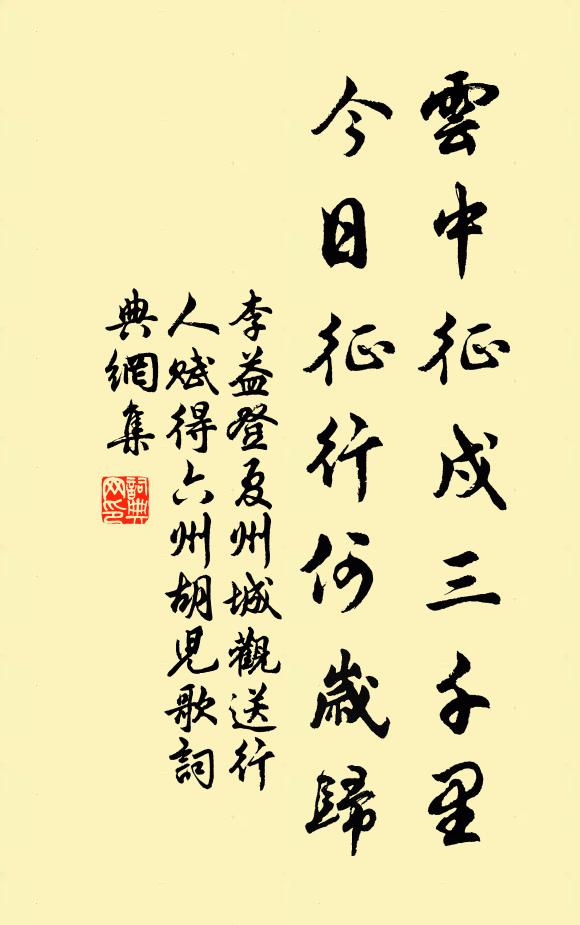 雲中征戍三千里
今日征行何歲歸
李益登夏州城觀送行
人賦得六州胡兒歌詞
典網集
詞典
网印